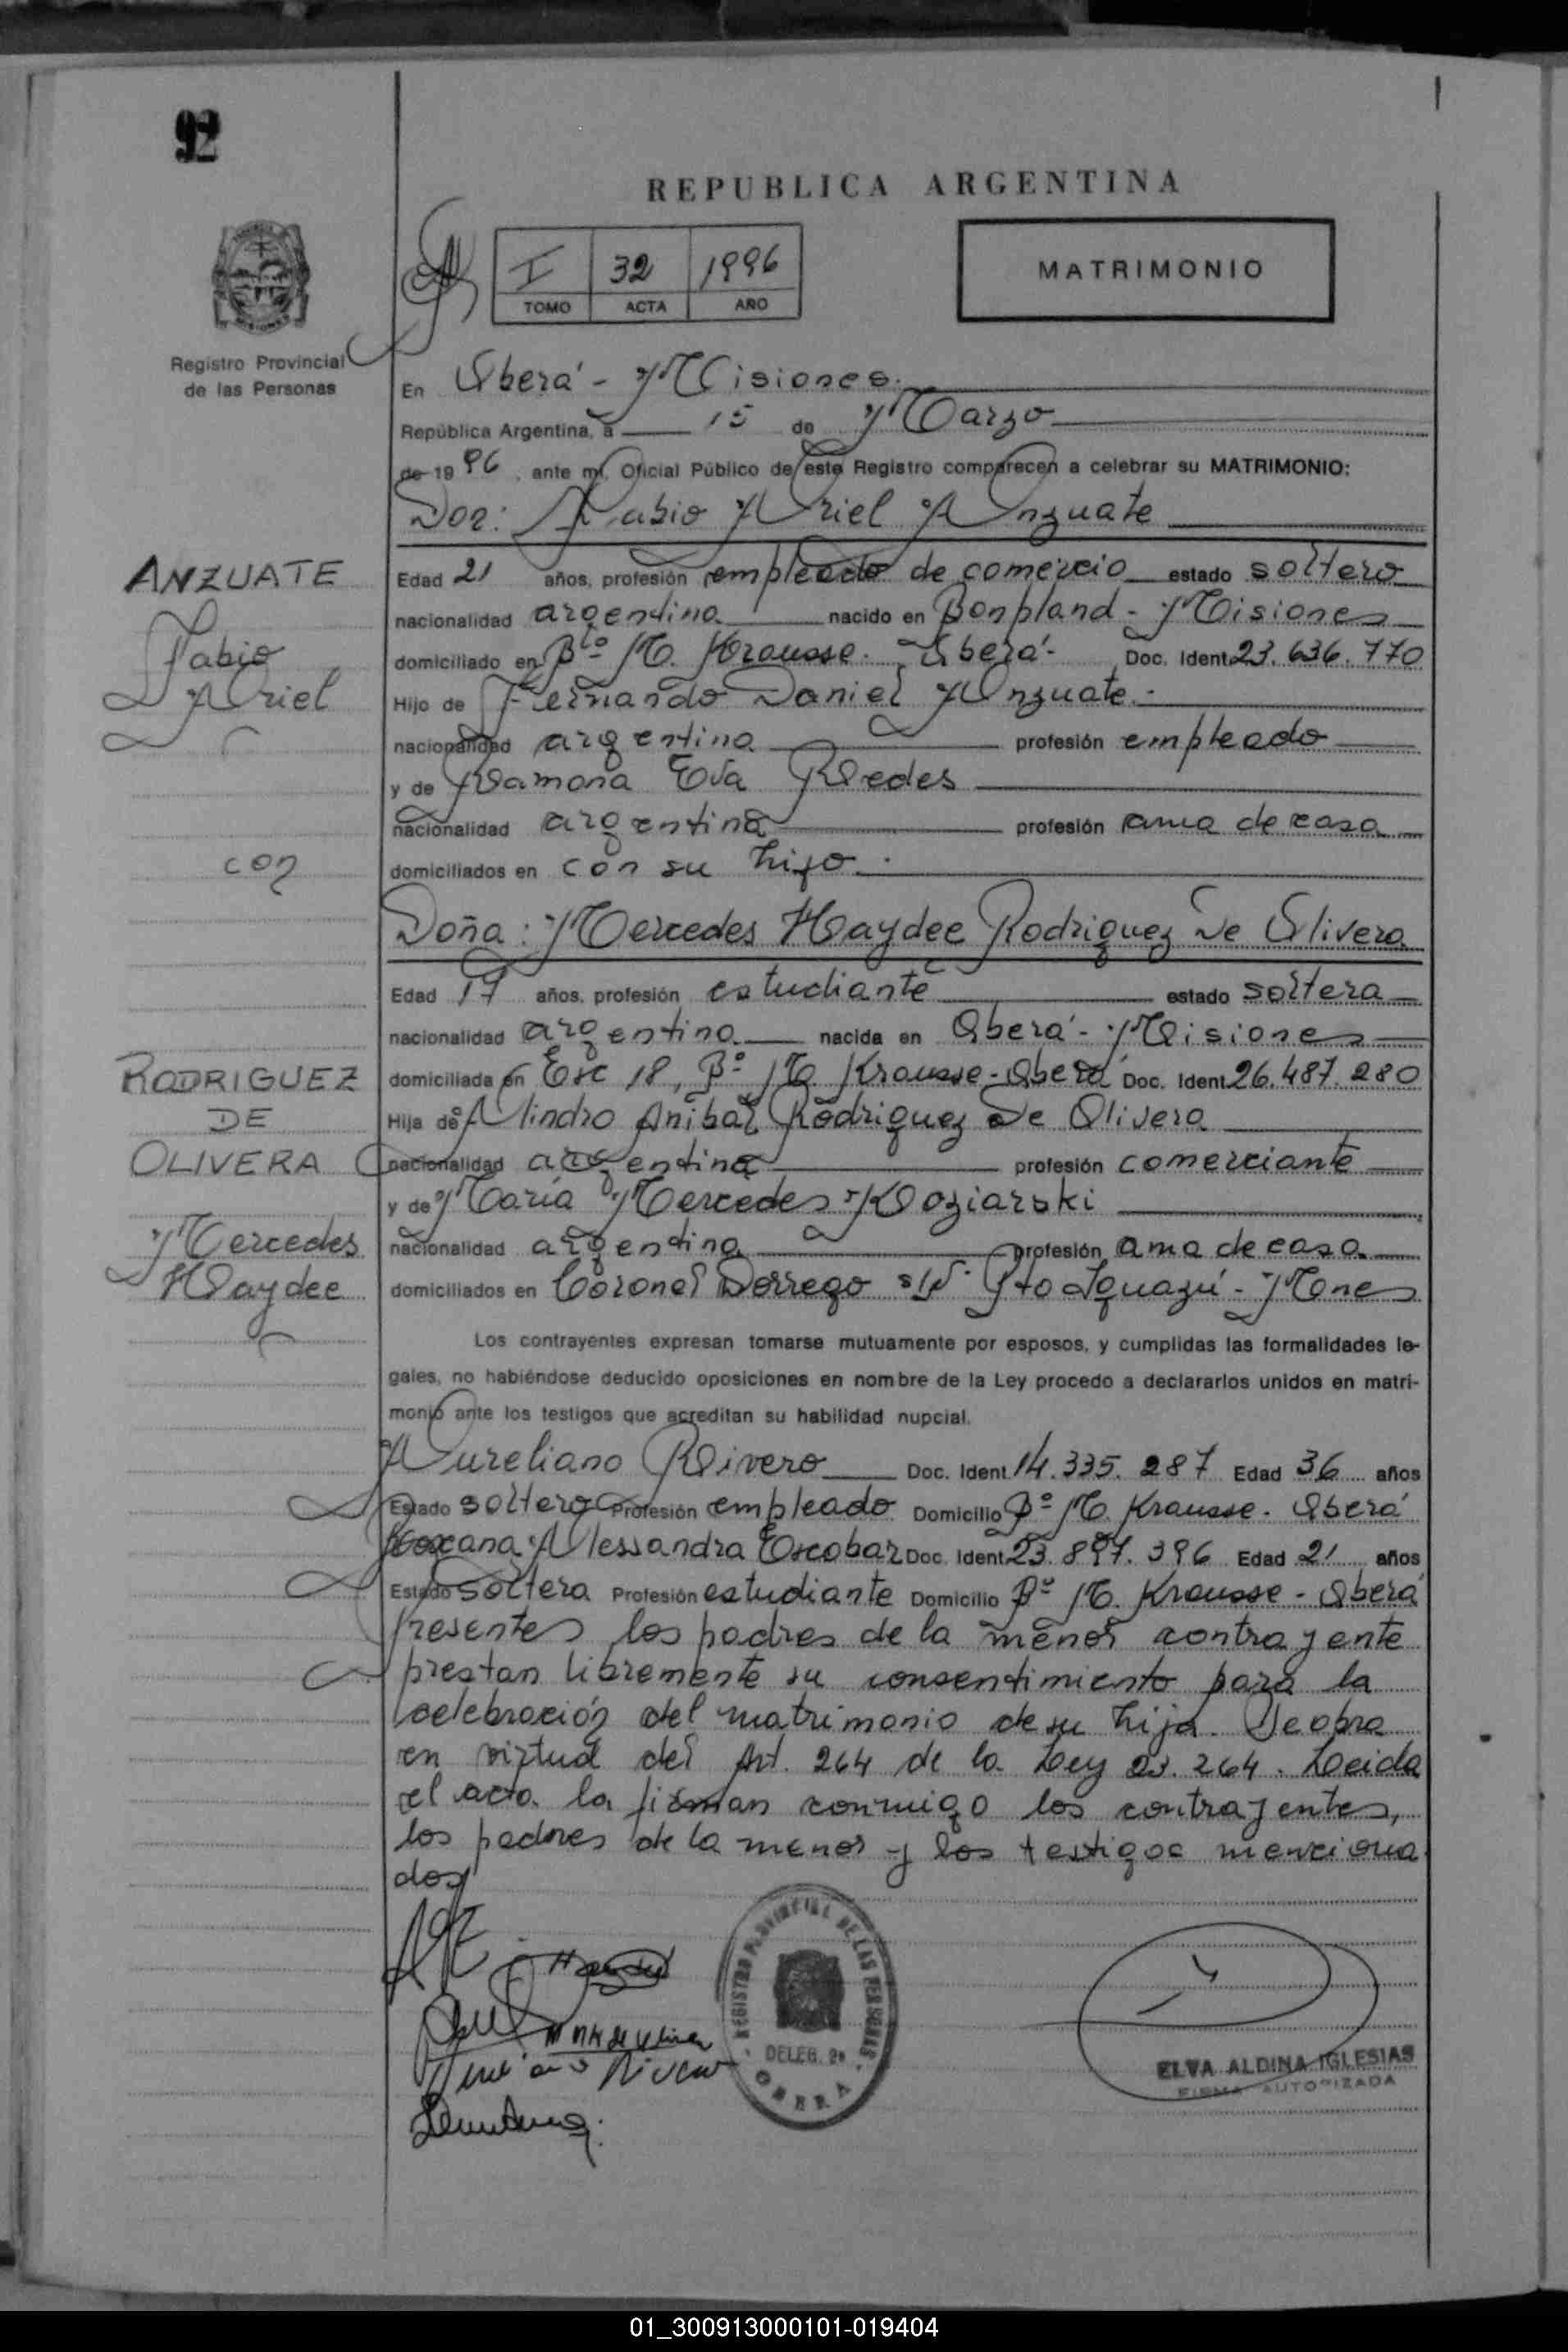 92
REPUBLICA ARGENTINA
I 32 1996
TOMO ACTA AÑO
MATRIMONIO
Registro Provincial
de las Personas
En Oberá - Misiones.
República Argentina, a 15 de Marzo
de 19 96, ante mí, Oficial Público de este Registro comparecen a celebrar su MATRIMONIO:
Don: Fabio Ariel Anzuate
ANZUATE
Fabio
Ariel
Edad 21 años, profesión empleado de comercio estado soltero
nacionalidad argentina nacido en Bonpland - Misiones
domiciliado en Bº M. Krausse - Oberá - Doc. Ident. 23.636.770
Hijo de Fernando Daniel Anzuate.-
nacionalidad argentina profesión empleado
y de Ramona Eva Redes
nacionalidad argentina profesión ama de casa
domiciliados en con su hijo.
con
Doña: Mercedes Haydee Rodriguez De Olivera
Edad 17 años, profesión estudiante estado soltera
nacionalidad argentina nacida en Oberá - Misiones
domiciliada en Esc 18, Bº M. Krausse - Oberá Doc. Ident. 26.487.280
Hija de Alindro Anibal Rodriguez De Olivera
nacionalidad argentina profesión comerciante
y de María Mercedes Koziarski
nacionalidad argentina profesión ama de casa
domiciliados en Coronel Dorrego s/Nº Pto Iguazú - Mnes
RODRIGUEZ
DE
OLIVERA
Mercedes
Haydee
Los contrayentes expresan tomarse mutuamente por esposos, y cumplidas las formalidades le-
gales, no habiéndose deducido oposiciones en nombre de la Ley procedo a declararlos unidos en matri-
monio ante los testigos que acreditan su habilidad nupcial.
Aureliano Rivero Doc. Ident. 14.335.287 Edad 36 años
Estado soltero Profesión empleado Domicilio Bº M. Krausse - Oberá
Roxana Alessandra Escobar Doc. Ident. 23.897.396 Edad 21 años
Estado soltera Profesión estudiante Domicilio Bº M. Krausse - Oberá
Presentes los padres de la menor contrayente
prestan libremente su consentimiento para la
celebración del matrimonio de su hija. Se obra
en virtud del Art. 264 de la Ley 23.264. Leida
el acta la firman conmigo los contrayentes,
los padres de la menor y los testigos menciona
dos
REGISTRO PROVINCIAL DE LAS PERSONAS
OBERA
ELVA ALDINA IGLESIAS
FIRMA AUTORIZADA
01_300913000101-019404